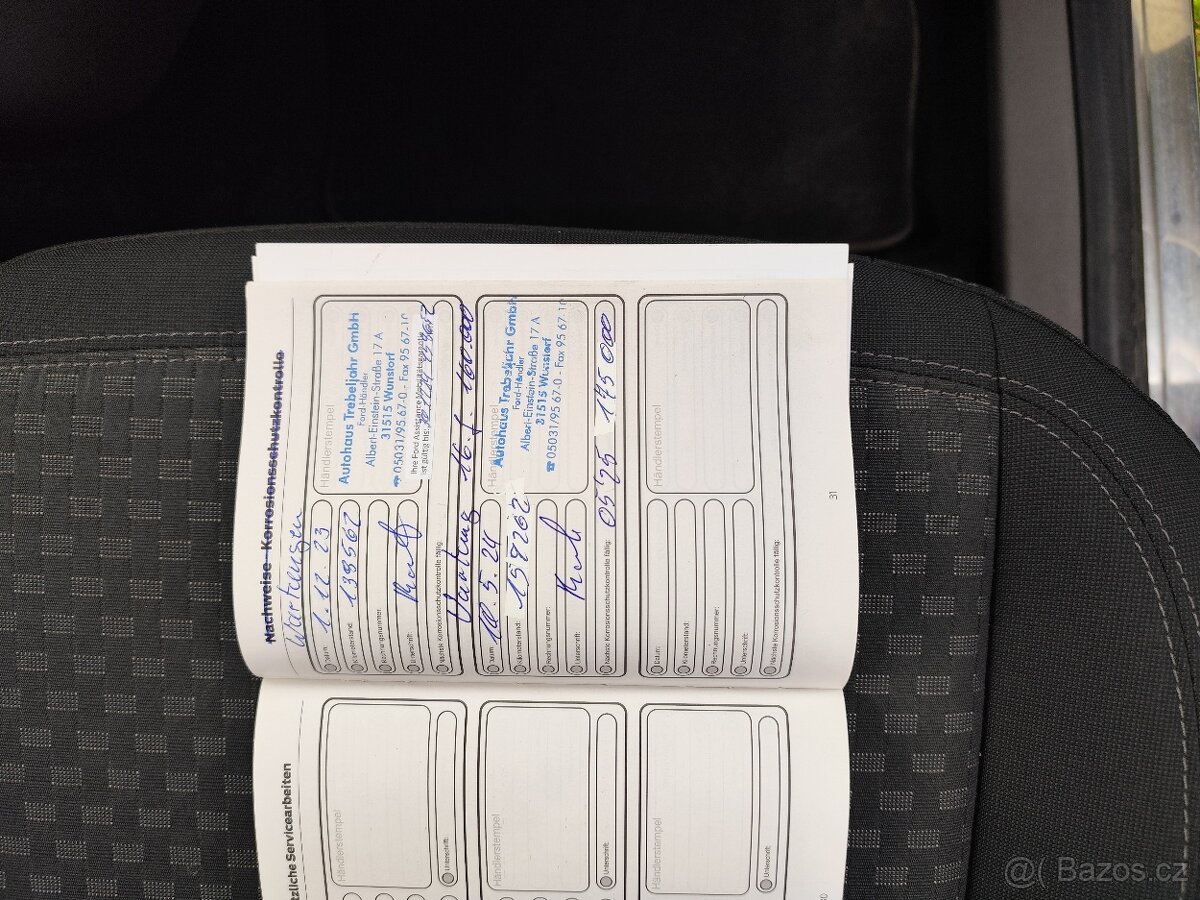 Nachweise Korrosionsschutzkontrolle
Wartungen
Datum: 1.12.23
Kilometerstand: 138562
Rechnungsnummer:
Unterschrift:
Nächste Korrosionsschutzkontrolle fällig:
Händlerstempel
Autohaus Trebeljahr GmbH
Ford-Händler
Albert-Einstein-Straße 17 A
31515 Wunstorf
☎ 05031/95 67-0 - Fax 95 67-10
Ihre Ford Assistance
ist gültig bis:
Wartung 160.000
Datum: 10.5.24
Kilometerstand: 157262
Rechnungsnummer:
Unterschrift:
Nächste Korrosionsschutzkontrolle fällig: 05'25 175 000
Händlerstempel
Autohaus Trebeljahr GmbH
Ford-Händler
Albert-Einstein-Straße 17 A
31515 Wunstorf
☎ 05031/95 67-0 - Fax 95 67-10
Datum:
Kilometerstand:
Rechnungsnummer:
Unterschrift:
Nächste Korrosionsschutzkontrolle fällig:
Händlerstempel
31
tzliche Servicearbeiten
Händlerstempel
Unterschrift:
Händlerstempel
Unterschrift:
Händlerstempel
Unterschrift:
Bazos.cz